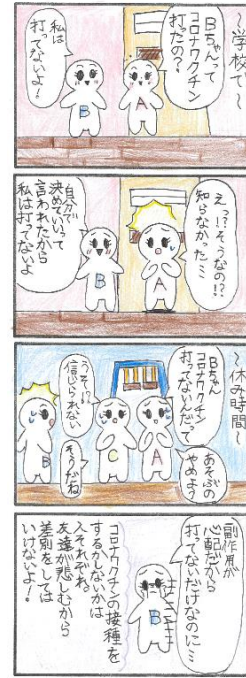 ～学校で～
Bちゃんって
コロナワクチン
打ったの?
私は
打ってないよ!
B
A
えっ?!そうなの!?
知らなかった…
自分で
決めていいって
言われたから
私は打ってないよ
B
A
～休み時間～
Bちゃん
コロナワクチン
打ってないんだって
あそぶの
やめよう
うそ!?
信じられない
そうだね
B
C
A
副作用が
心配だから
打ってないだけなのに…
B
コロナワクチンの接種を
するかしないかは
人それぞれ。
友達が悲しむから
差別をしては
いけないよ!